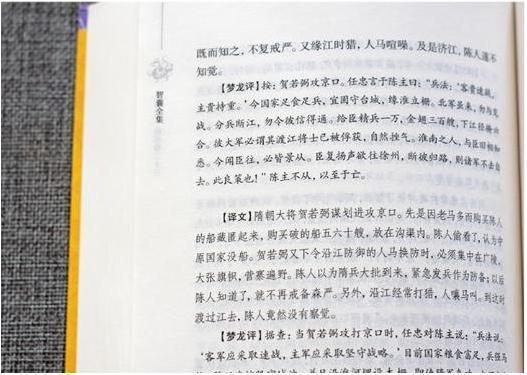 既而知之，不复戒严。又缘江时猎，人马喧噪。及是济江，陈人遂不
知觉。
【梦龙评】按：贺若弼攻京口。任忠言于陈主曰：“兵法：‘客贵速战，
主贵持重。’今国家足食足兵，宜固守台城，缘淮立栅。北军虽来，勿与交
战。分兵断江，勿令彼信得通。给臣精兵一万，金翅三百艘，下江径掩六
合。彼大军必谓其渡江将士已被俘获，自然挫气。淮南之人，与臣旧相知
悉。今闻臣往，必皆景从。臣复扬声欲往徐州，断彼归路，则诸军不击自
去。此良策也！”陈主不从，以至于亡。
【译文】隋朝大将贺若弼谋划进攻京口。先是因老马多而购买陈人
的船藏匿起来，购买破的船五六十艘，放在沟渠内。陈人偷看了，认为中
原国家没船。贺若弼又下令沿江防御的人马换防时，必须集中在广陵，
大张旗帜，营寨遍野。陈人以为隋兵大批到来，紧急发兵作为防备；以后
陈人知道了，就不再戒备森严。另外，沿江经常打猎，人嚷马叫。到这时
渡过江去，陈人竟然没有察觉。
【梦龙评】据查：当贺若弼攻打京口时，任忠对陈主说：“兵法说：
‘客军应采取速战，主军应采取坚守战略。’目前国家粮食富足，兵强马
智囊全集